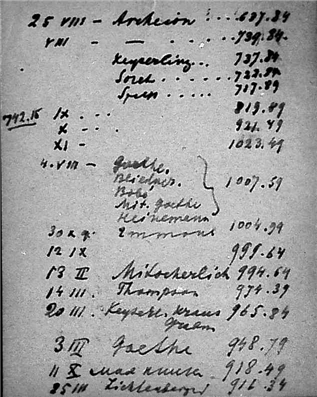 25 VIII - Archeion .... 637.84
VIII - — ..... 739.84
Keyserling.. 737.84
Soret .... 722.84
Speth .... 717.89
742.15 IX .... 819.89
X .... 921.49
XI - 1023.49
4. VIII - Goethe,
Bliedner.
Bobé 1007.59
Mit. Goethe
Heinemann
30 X g. Emmons 1004.99
12 IX 999.64
13 II Mitscherlich 994.64
14 III. Thompson 974.39
20 III. Keyserl. Kraus 965.84
3 III Goethe 948.79
11 X 918.49
25 III Lichtenberger 911.34